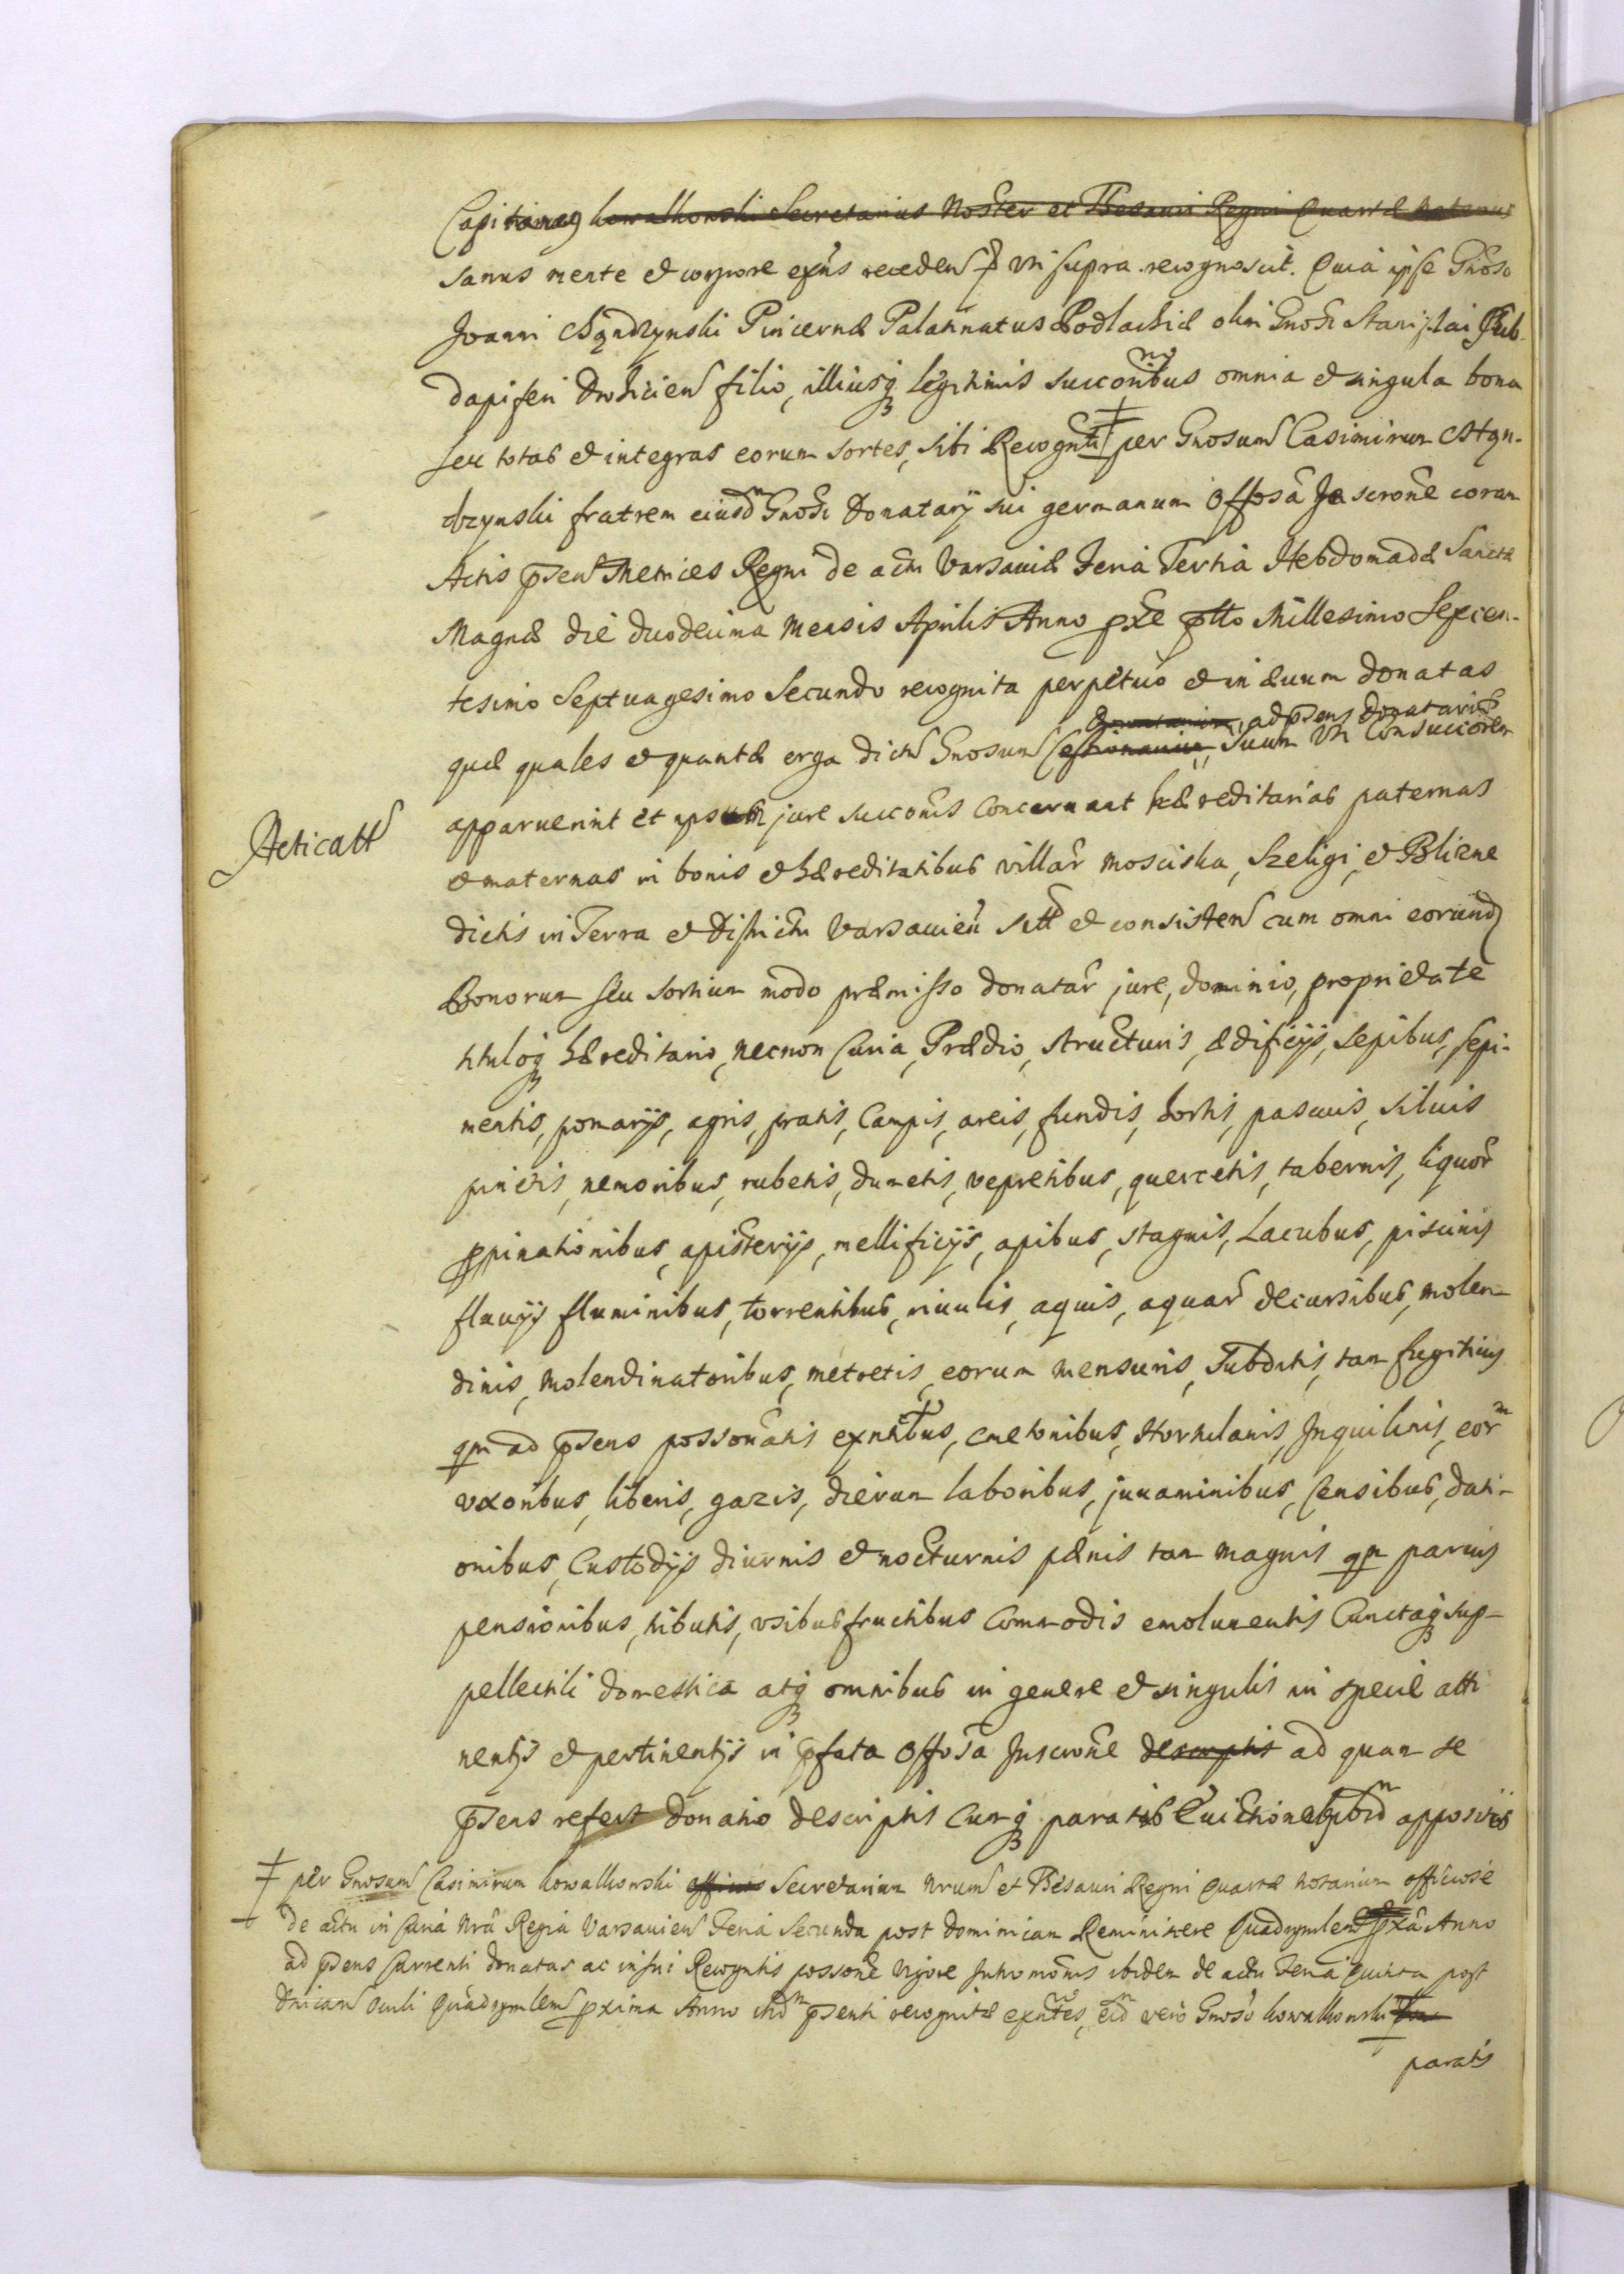 Capitaneg Kowalkowski Secretarius Noster et Thesauri Regni Quartæ Notarius
sanus mente et corpore exñs recedens p uti supra recognoscit. Quia ipse Gñoso
Joanni Skędzynski Pincernæ Palatinatus Podlachiæ olim Gnosi Stanislai Sub
dapiferi Drohicien filio, illiusq legitimis succoribus omnia et singula bona
seu totas et integras eorum sortes, sibi Recognti ‡ per Gnosum Casimirum
dzynski fratrem eiusd Gnosi Donatarij sui germanum Offosa Inscrone coram
Actis psen Metrices Regni de actu Varsaviæ Feria Tertia Hebdomadæ Sanctæ
Magnæ die duodecima mensis Aprilis Anno pxe ptto Millesimo Septcen-
tesimo Septuagesimo Secundo recognita perpetuo et in ævum donatas
ad psens donatariu
quæ quales et quantæ erga dictu Gnosum suum uti Consuccorem
apparuerint et ipsum jure succonis concernant hæreditarias paternas
Acticatt
et maternas in bonis et hæreditatibus villar Mosciska, Szeligi, et Blizne
dictis in Terra et Districtu Varsavien sitt et consisten cum omni eorund
Bonorum seu sortium modo præmisso donatar jure, dominio, proprietate
tituloq hæreditario, necnon Curia, Prædio, structuris, ædificijs, sepibus, sepi-
mentis, pomarijs, agris, pratis, Campis, areis, fundis, hortis, pascuis, siluis
pinetis, nemoribus, rubetis, dumetis, vepretibus, quercetis, tabernis, liquor
ppinationibus, apisterijs, mellificijs, apibus, stagnis, Lacubus, piscinis
fluvijs fluminibus, torrentibus, rivulis, aquis, aquar decursibus, molen-
dinis, Molendinatoribus, metretis, eorum mensuris, Subditis, tam fugitivis
qm ad psens possonatis exntibus, Cmetonibus, Hortulanis, Inquilinis, eor
uxoribus, liberis, gazis, dierum laboribus, juvaminibus, Censibus, dati-
onibus, Custodijs diurnis et nocturnis pænis tam magnis qm parvis
pensionibus, tributis, usibus fructibus Commodis emolumentis Cunctaq sup-
pellectili domestica atq omnibus in genere et singulis in specie atti
nentijs et pertinentijs in pfata Offosa Inscrone descriptis ad quam se
psens refert donatio descriptis Cumq paratis Evictione ibid appositis
‡ per Gnosum Casimirum Kowalkowski officiose Secretarium Nrum et Thesauri Regni Quartæ Notarium officiose
de actu in Curia Nra Regia Varsavien Feria Secunda post Dominicam Reminiscere Quadrgmlem pxa Anno
ad psens Currenti donatas ac in sui Recogntis possone vigore Intromonis ibidem de actu Feria Quinta post
Dnicam Oculi Quadrgmlem pxima Anno itid psenti recognitæ exntes, eid vero Gnoso Kowalkowski
paratis